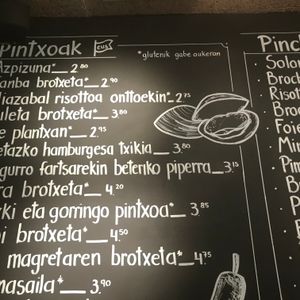 Pintxoak eus
*glutenik gabe aukeran
Azpizuna*__2.80
anba brotxeta*__2.90
iazabal risottoa onttoekin*__2.75
uleta brotxeta*__3.80
e plantxan*__2.95
etazko hamburgesa txikia__3.80
gurro fartsarekin beteriko piperra__3.15
ra brotxeta*__4.20
rki eta gorringo pintxoa*__3.85
ni brotxeta*__4.50
magretaren brotxeta*__4.75
masaila*__3.90
Pin
Solo
Broc
Risot
Bro
Foie
Min
Pim
B
Br
P
B
B